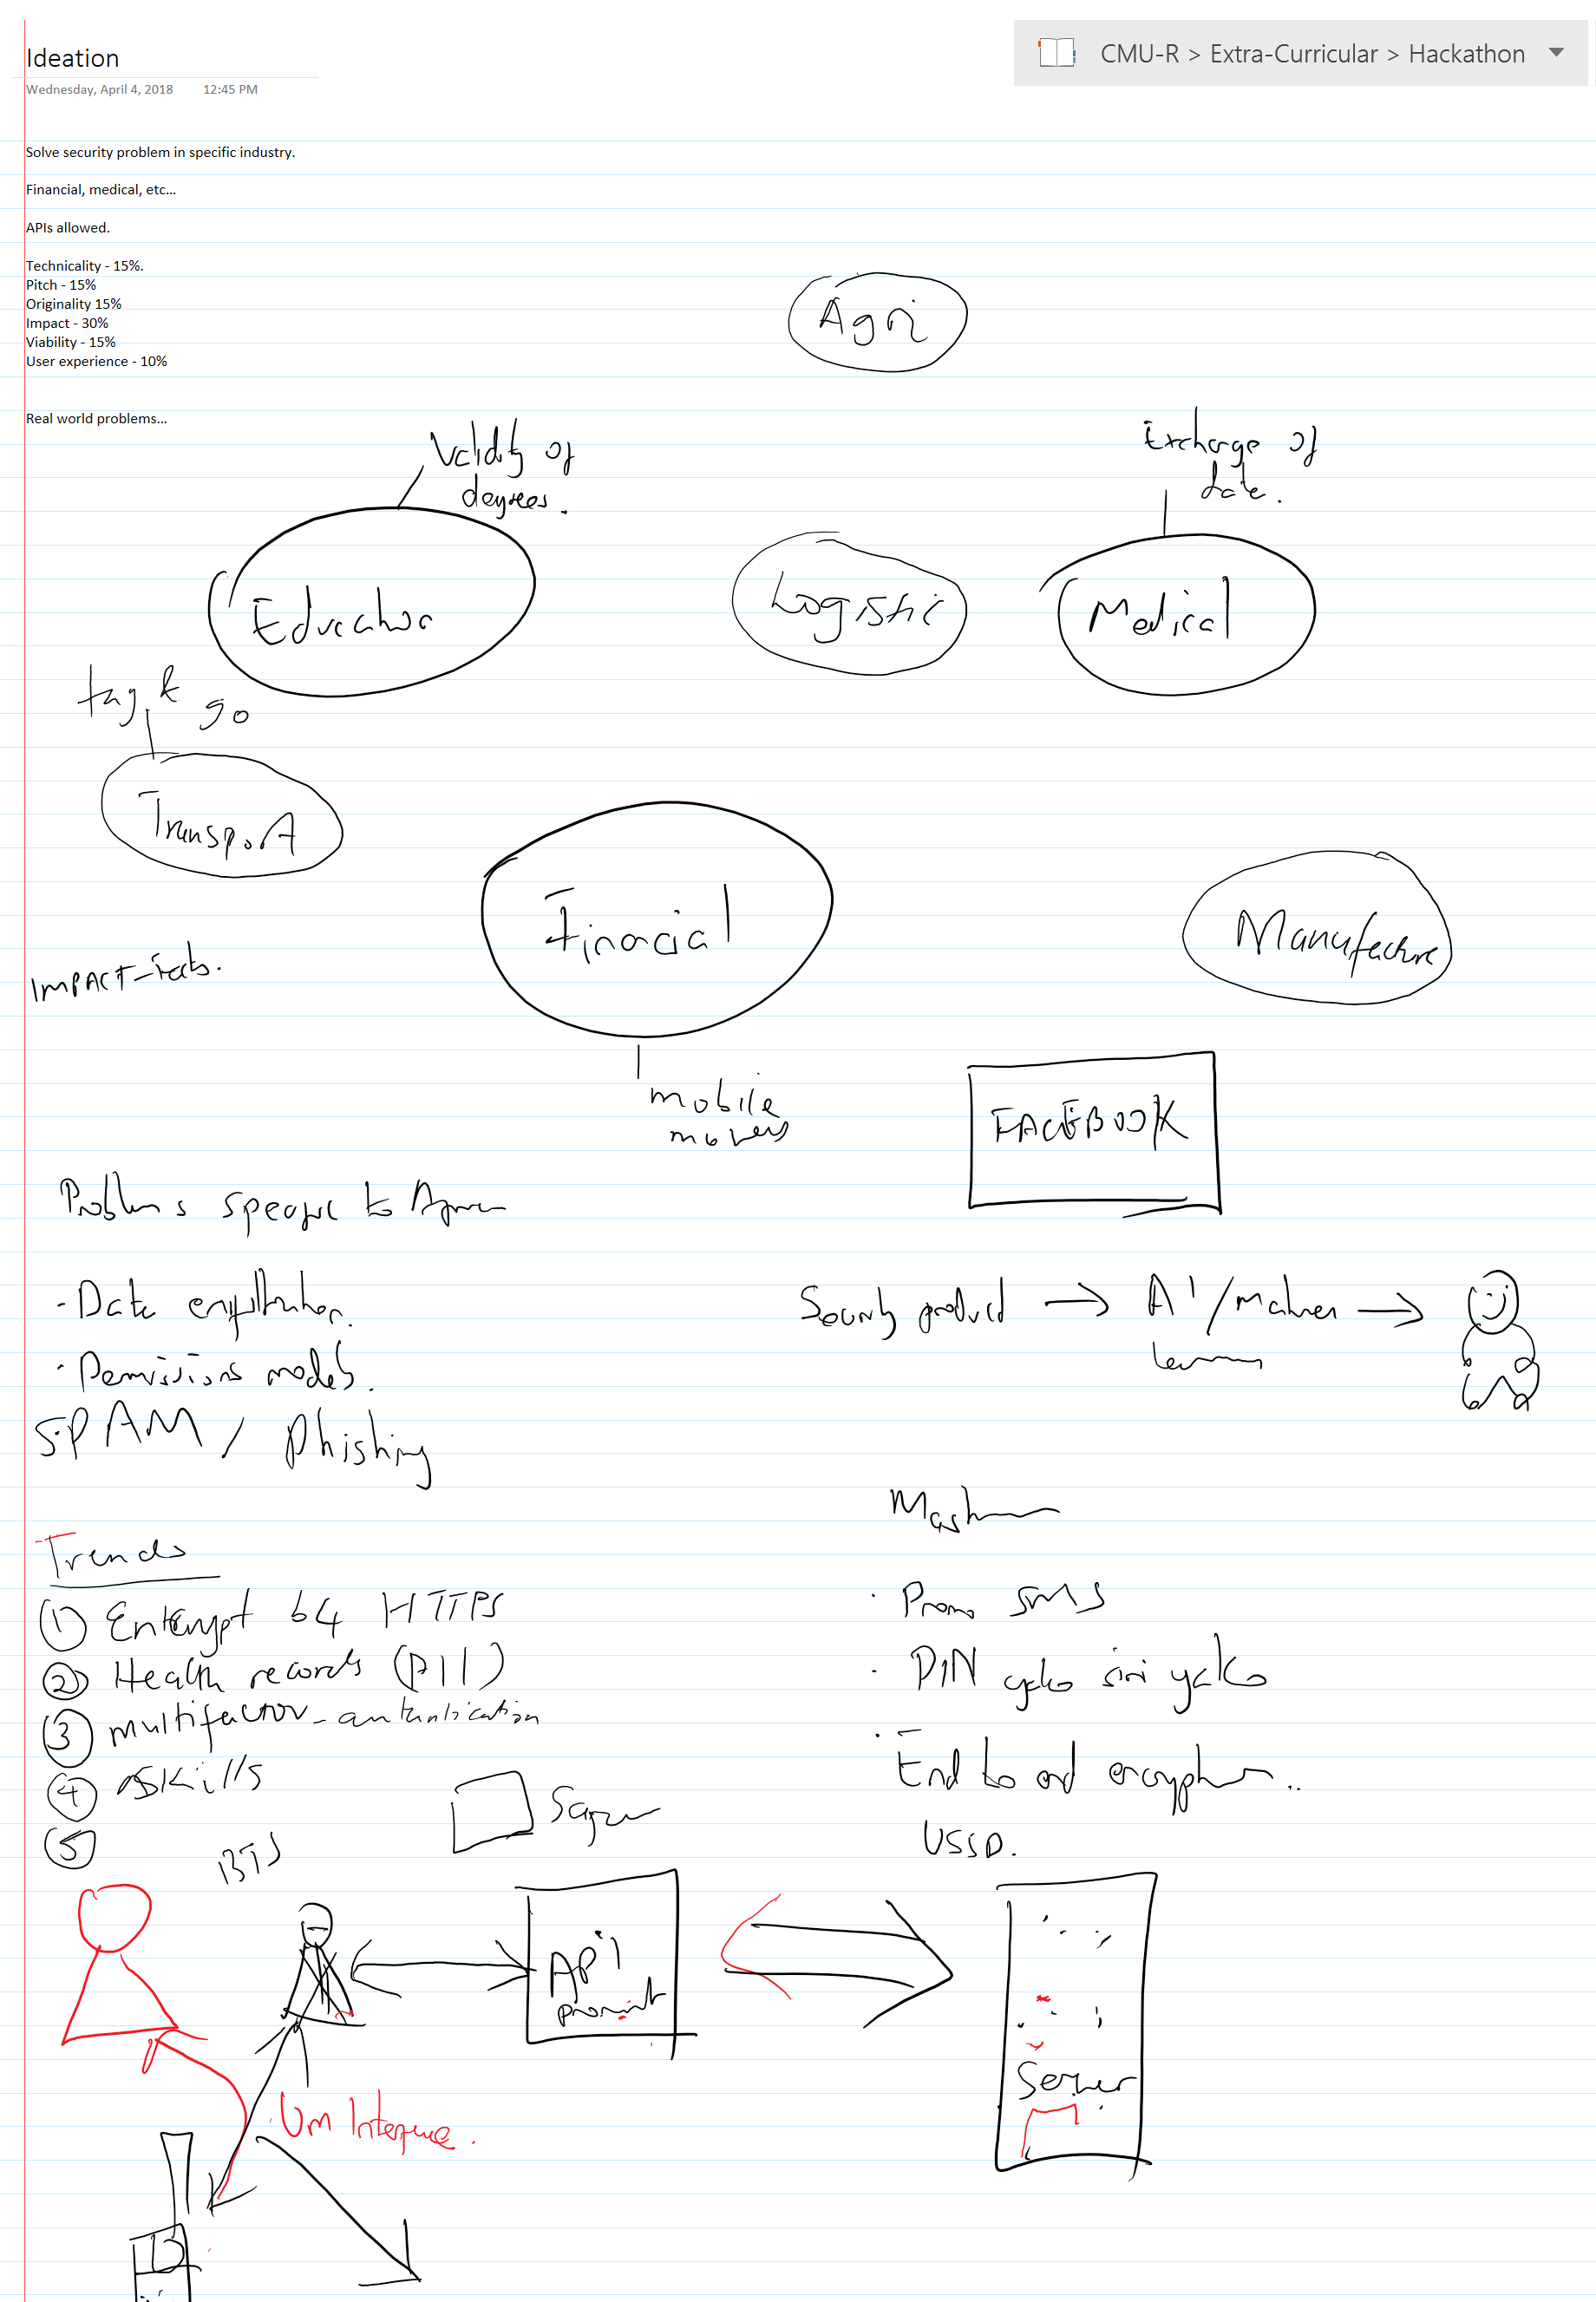 Ideation
CMU-R > Extra-Curricular > Hackathon
Wednesday, April 4, 2018 12:45 PM
Solve security problem in specific industry.
Financial, medical, etc...
APIs allowed.
Technicality - 15%.
Pitch - 15%
Originality 15%
Impact - 30%
Viability - 15%
User experience - 10%
Agri
Real world problems...
Validity of
degrees.
Exchange of
data.
Education
Logistic
Medical
tag &
go
Transport
Financial
Manufacture
IMPACT -
mobile
money
FACEBOOK
Problems specific to
- Data
- Permissions models.
SPAM / Phishing
Security product → AI / machine →
learning
Trends
① Entcrypt 64 HTTPS
② Health records (PII)
③ multifactor - authentication
④ skills
⑤
· Promo SMS
· PIN yako siri yako
· End to end encryption..
USSD.
BTS
API
Server
Um Interface.